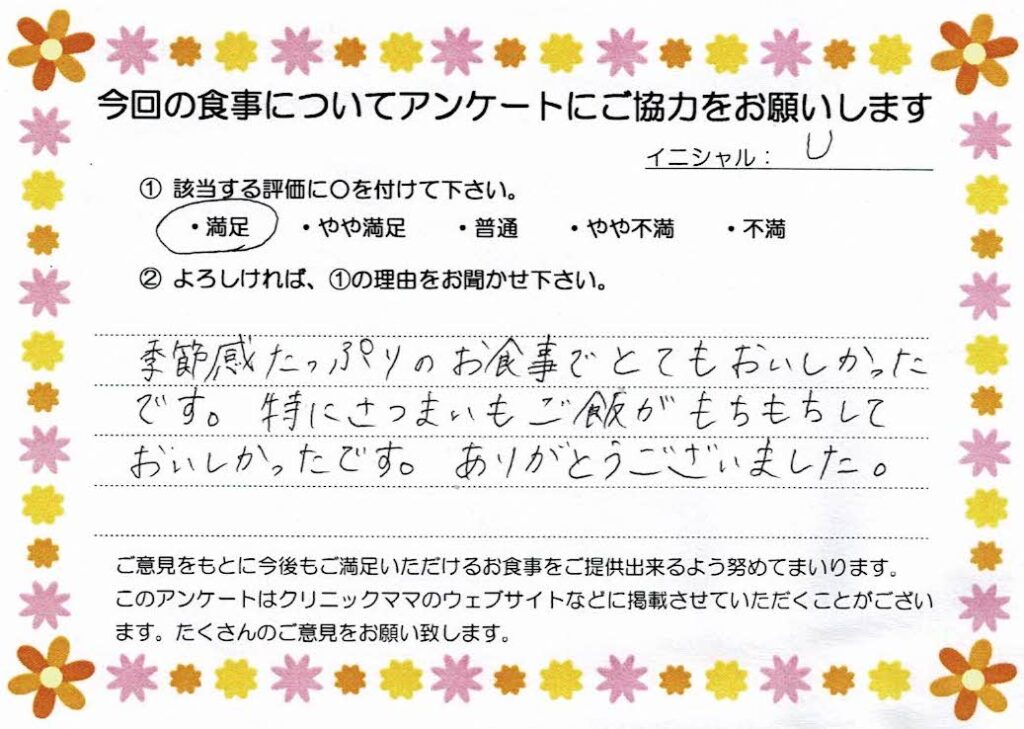 今回の食事についてアンケートにご協力をお願いします
イニシャル： U
① 該当する評価に〇を付けて下さい。
・満足 ・やや満足 ・普通 ・やや不満 ・不満
② よろしければ、①の理由をお聞かせ下さい。
季節感たっぷりのお食事でとてもおいしかった
です。特にさつまいもご飯がもちもちして
おいしかったです。ありがとうございました。
ご意見をもとに今後もご満足いただけるお食事をご提供出来るよう努めてまいります。
このアンケートはクリニックママのウェブサイトなどに掲載させていただくことがござい
ます。たくさんのご意見をお願い致します。